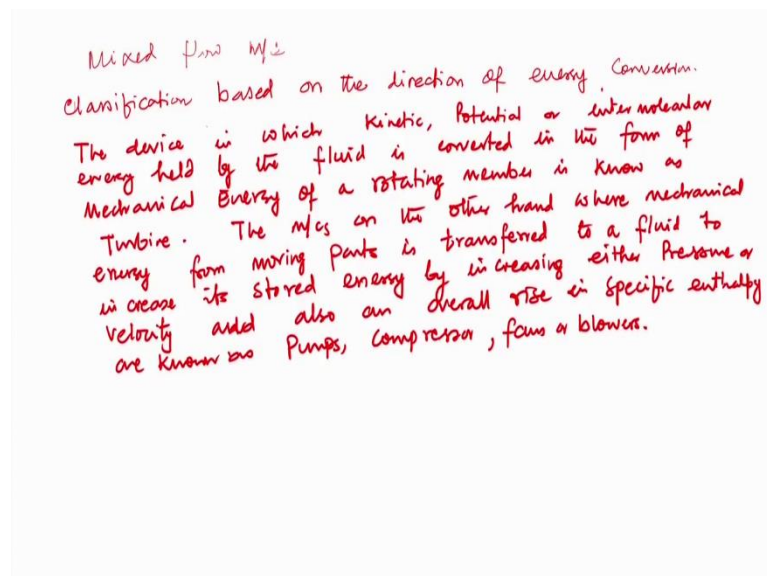 Mixed flow m/c
Classification based on the direction of energy conversion.
The device in which Kinetic, Potential or intermolecular
energy held by the fluid is converted in the form of
Mechanical Energy of a rotating member is know as
Turbine. The m/cs on the other hand where mechanical
energy form moving parts is transferred to a fluid to
increase its stored energy by increasing either Pressure or
velocity and also an overall rise in specific enthalpy
are known as Pumps, Compressor, fans or blowers.